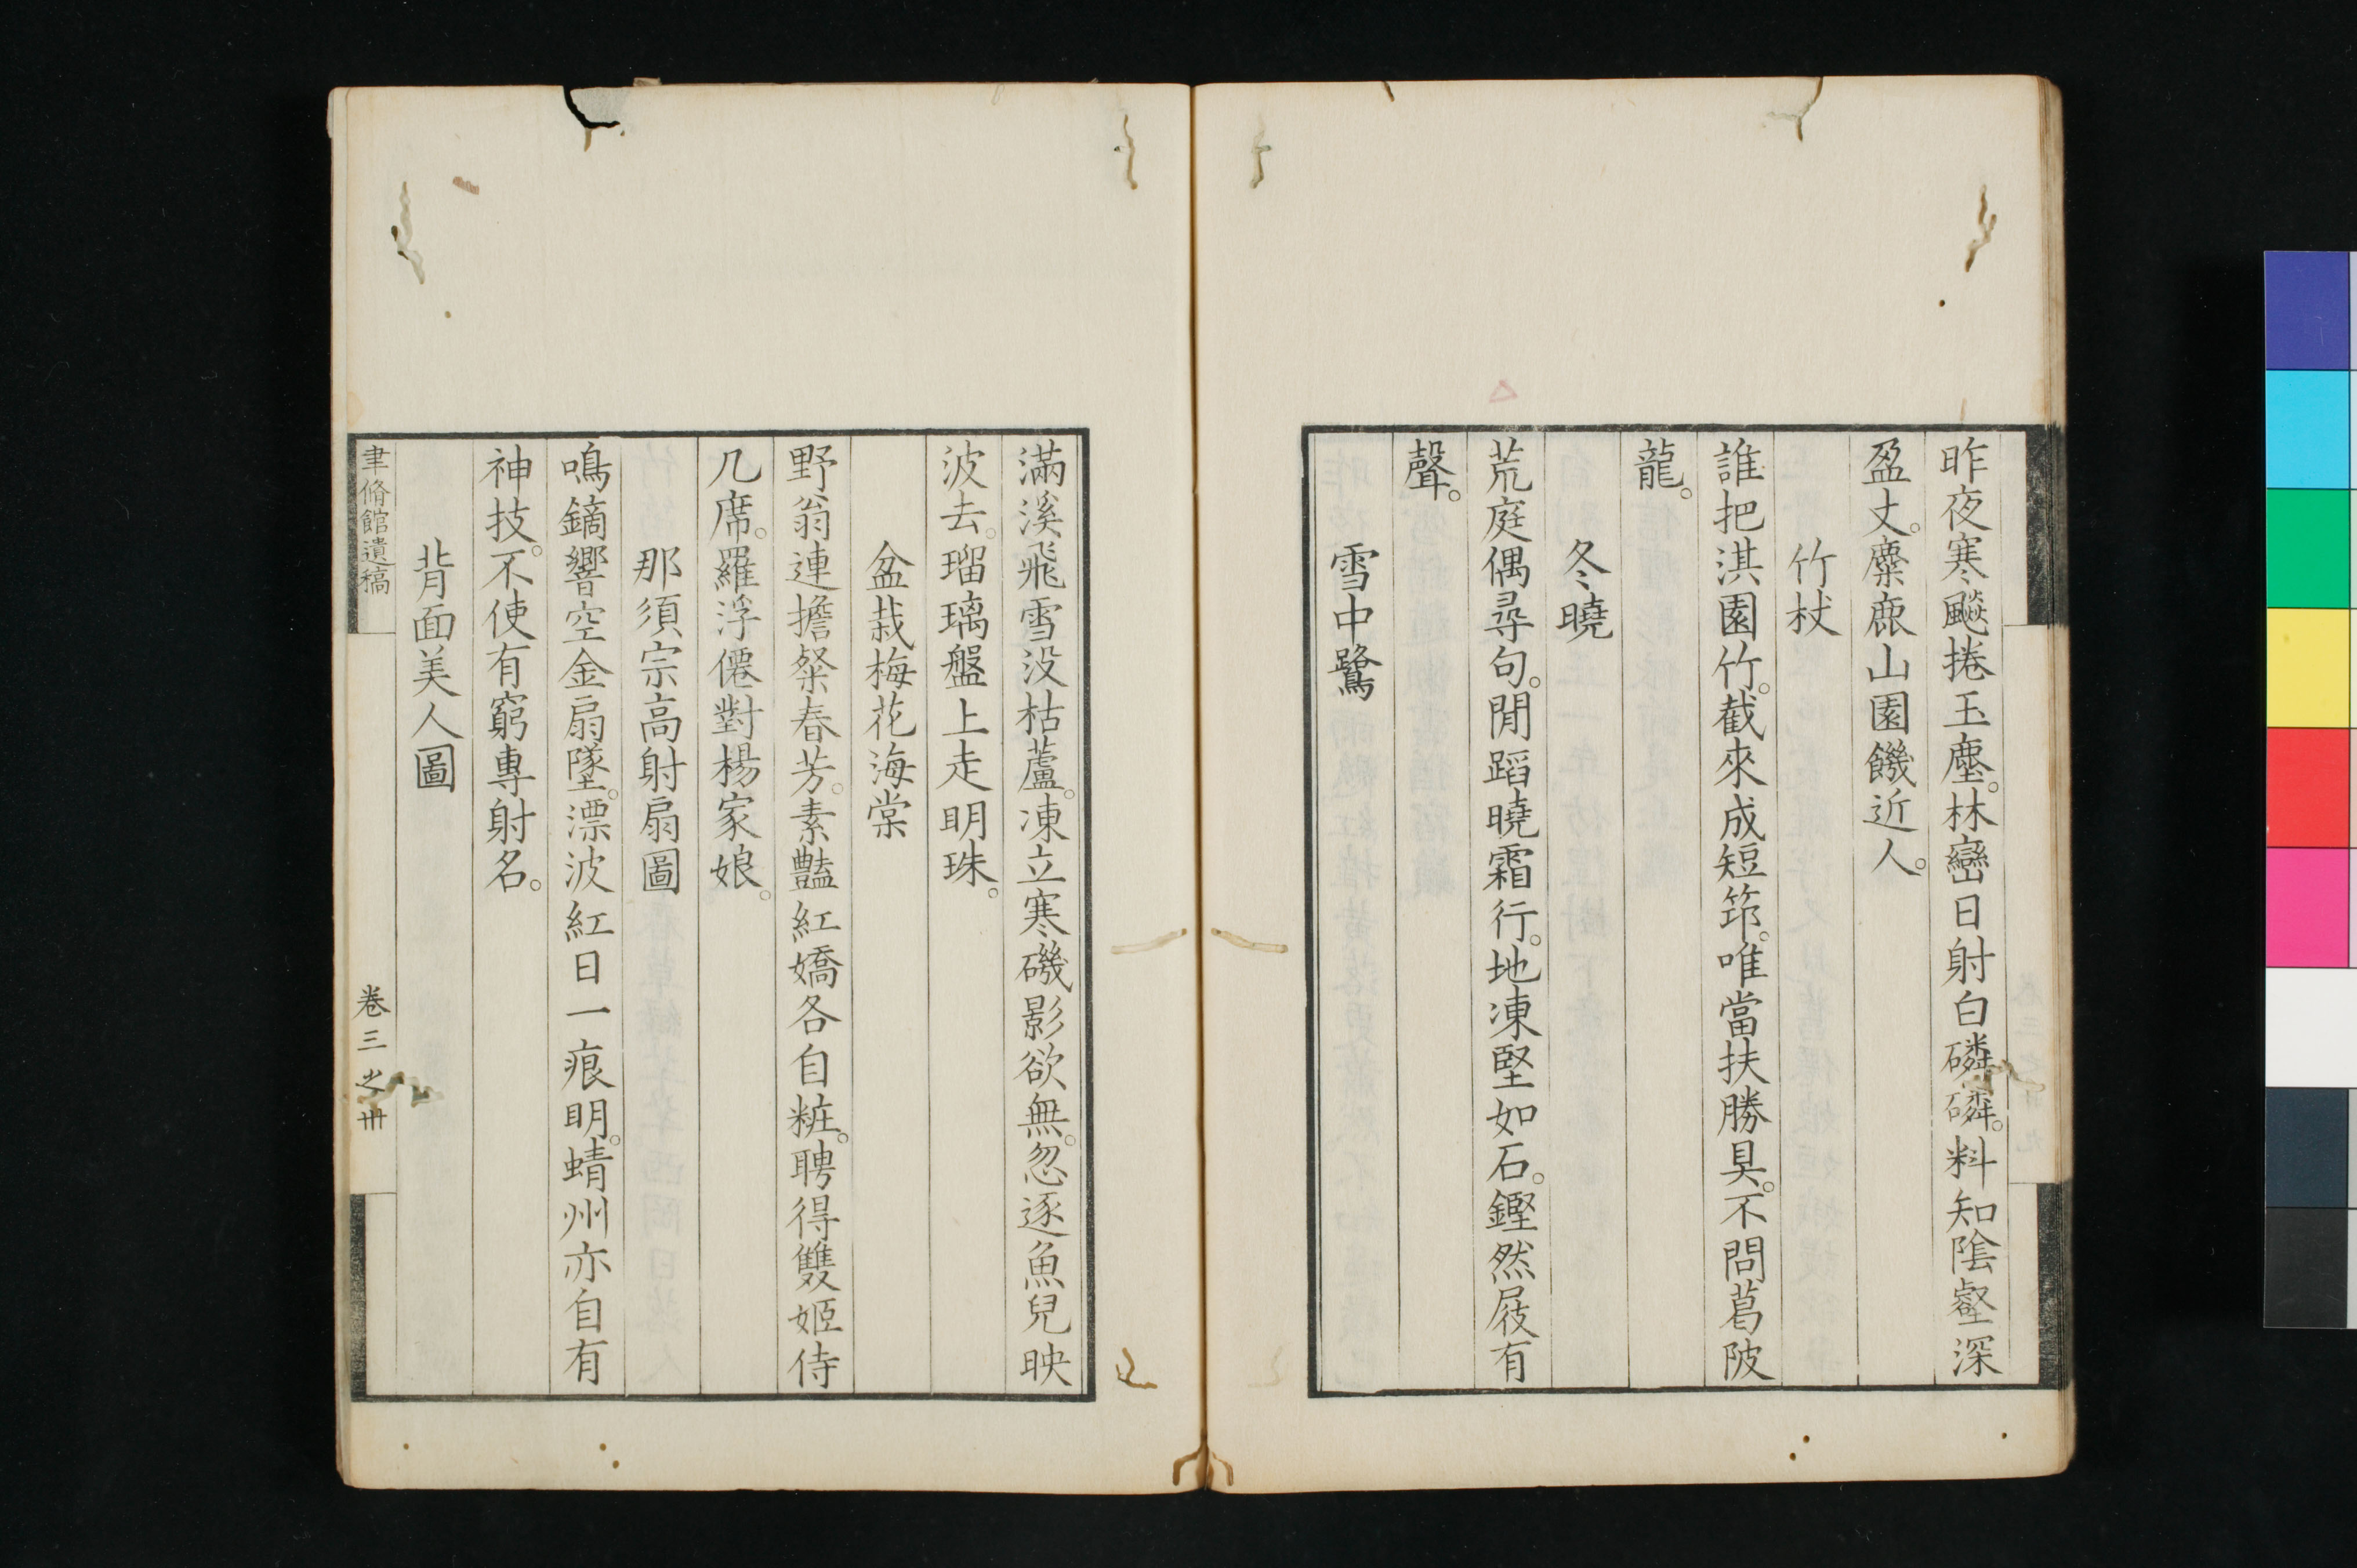 昨夜寒飈捲玉塵。林巒日射白磷磷。料知陰壑深
盈丈。麋鹿山園饑近人。
竹杖
誰把淇園竹。截來成短笻。唯當扶勝具。不問葛陂
龍。
冬曉
荒庭偶尋句。閒蹈曉霜行。地凍堅如石。鏗然屐有
聲。
雪中鷺
滿溪飛雪没枯蘆。凍立寒磯影欲無。忽逐魚兒映
波去。瑠璃盤上走明珠。
盆栽梅花海棠
野翁連擔粲春芳。素豔紅嬌各自粧。聘得雙姬侍
几席。羅浮僊對楊家娘。
那須宗高射扇圖
鳴鏑響空金扇墜。漂波紅日一痕明。蜻州亦自有
神技。不使有窮專射名。
背面美人圖
聿脩館遺稿
卷三之卅